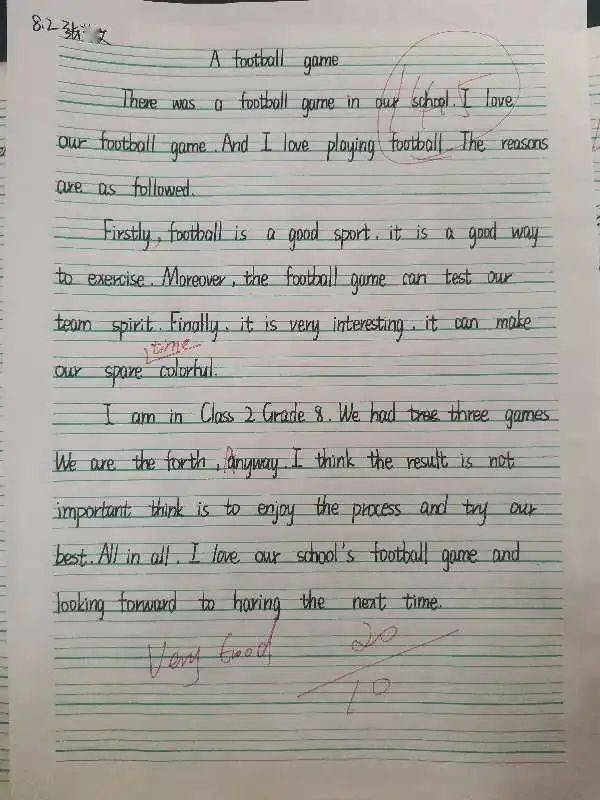 8.2 张 文
A football game
There was a football game in our school. I love
our football game. And I love playing football. The reasons
are as followed.
Firstly, football is a good sport. it is a good way
to exercise. Moreover, the football game can test our
team spirit. Finally. it is very interesting. it can make
time
our spare colorful.
I am in Class 2 Grade 8. We had tree three games
We are the forth, Anyway. I think the result is not
important think is to enjoy the process and try our
best. All in all. I love our school's football game and
looking forward to having the next time.
Very Good
20
10